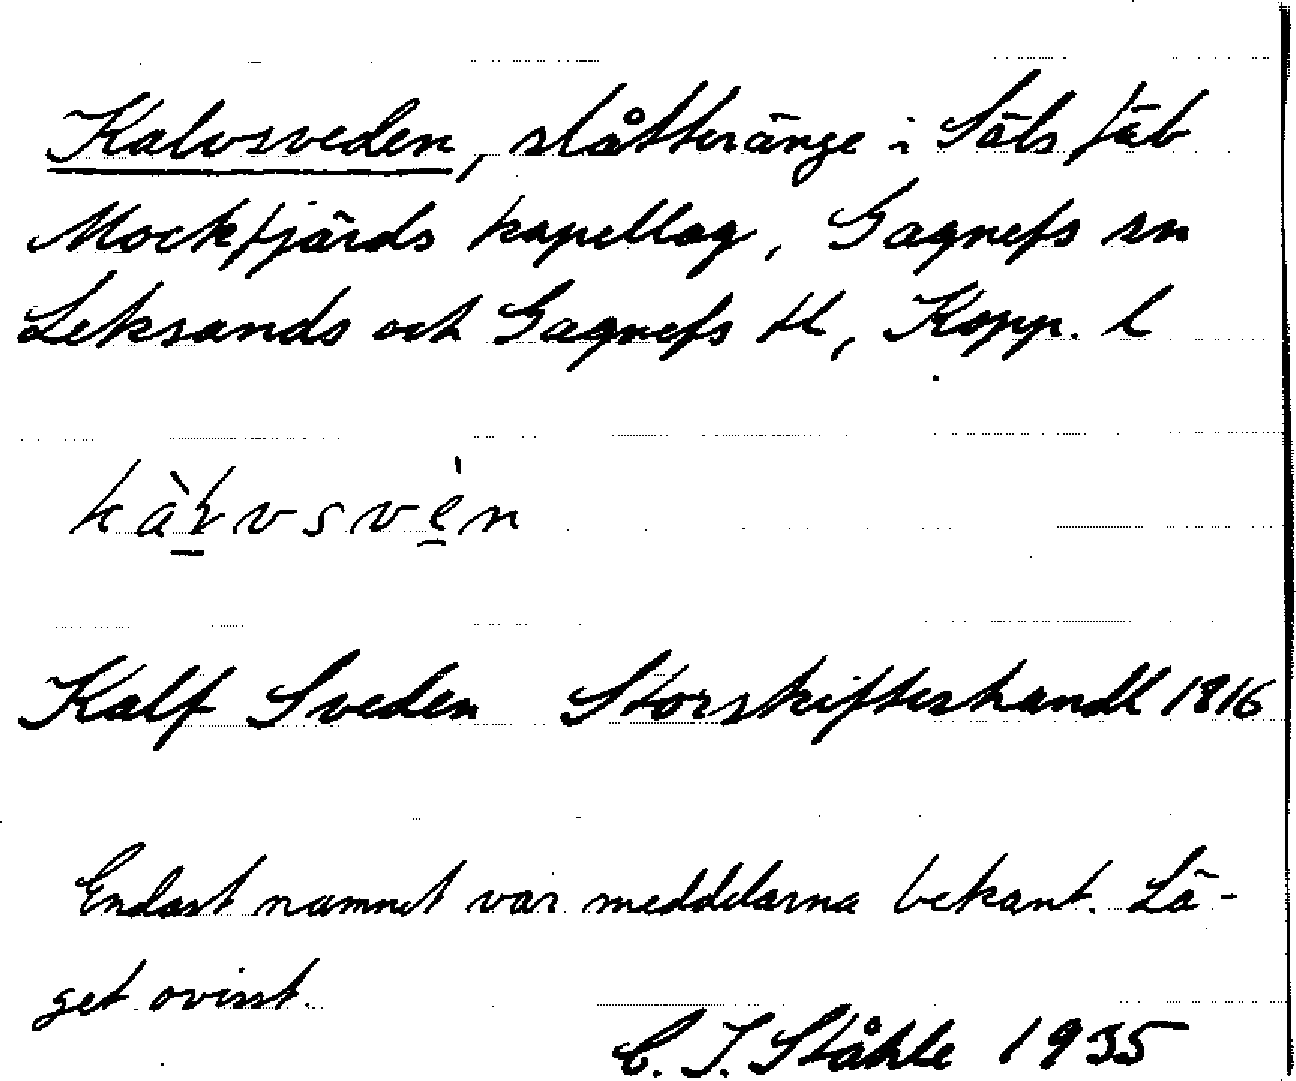 Kalvsveden, slåtteränge i Säls fäb
Mockfjärds kapellag, Gagnefs sn
Leksands och Gagnefs tl, Kopp. l
Kalf Sveden Storskifteshandl 1816
Endast namnet var meddelarna bekant. Lä-
get ovisst.
C. I. Ståhle 1935